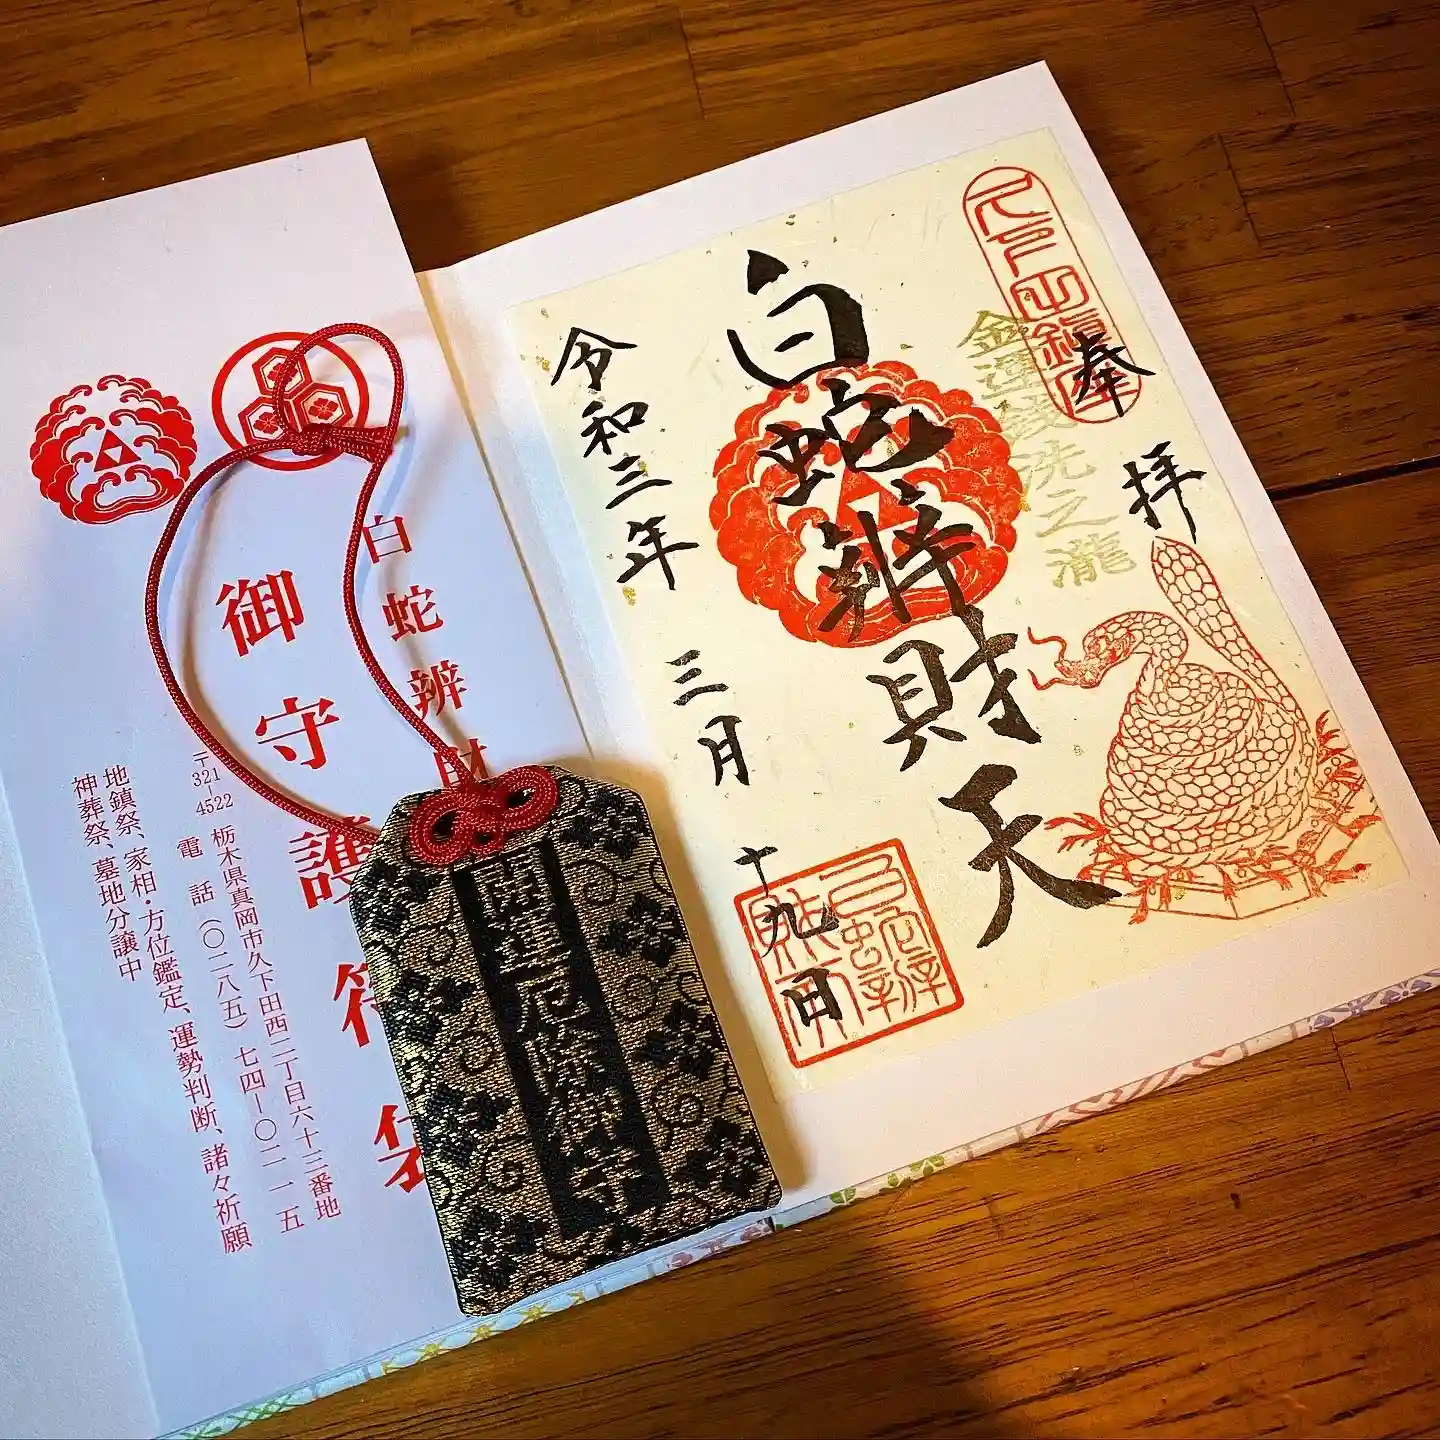 奉拝
金運銭洗之瀧
白蛇辨財天
令和三年
三月
十九日
白蛇辨財
御守護符袋
〒321-4522
栃木県真岡市久下田西二丁目六十三番地
電話(〇二八五)七四ー〇二一五
地鎮祭、家相・方位鑑定、運勢判断、諸々祈願
神葬祭、墓地分譲中
開運厄除御守